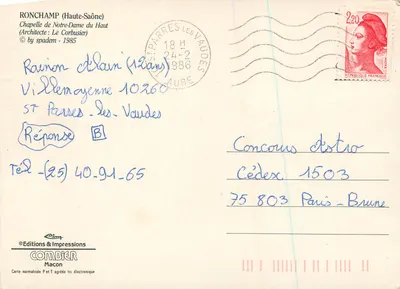 RONCHAMP (Haute-Saône)
Chapelle de Notre-Dame du Haut
(Architecte : Le Corbusier)
© by spadem - 1985
ST PARRES LES VAUDES
18 H
24-2
1986
AUBE
2,20
REPUBLIQUE FRANÇAISE
Rainon Alain (12 ans)
Villemoyenne 10260
ST Parres-les-Vaudes
Réponse B
Tél-(25) 40-91-65
Concours Astro
Cédex 1503
75 803 Paris-Brune
Editions & Impressions
COMBIER
Macon
Carte normalisée P et T agréée no électronique